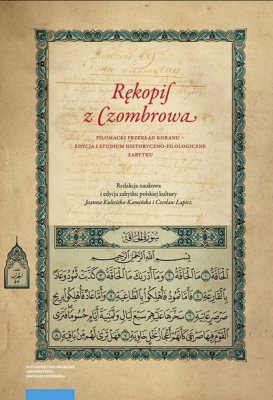 Rękopis
z Czombrowa
FILOMACKI PRZEKŁAD KORANU –
EDYCJA I STUDIUM HISTORYCZNO-FILOLOGICZNE
ZABYTKU
Redakcja naukowa
i edycja zabytku polskiej kultury
Joanna Kulwicka-Kamińska i Czesław Łapicz
سورة الحاقة
بسم الله الرحمن الرحيم
الحاقة ما الحاقة وما أدريك ما الحاقة كذبت ثمود وعاد
بالقارعة فأما ثمود فأهلكوا بالطاغية وأما عاد فأهلكوا بريح
صرصر عاتية سخرها عليهم سبع ليال وثمانية أيام حسوما فترى
القوم فيها صرعى كأنهم أعجاز نخل خاوية فهل ترى لهم من باقية
WYDAWNICTWO NAUKOWE
UNIWERSYTETU
MIKOŁAJA KOPERNIKA